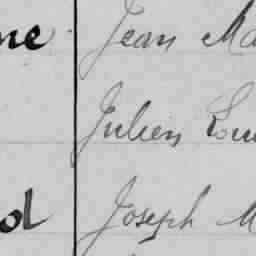 ne Jean Ma
Julien Lou
d Joseph M